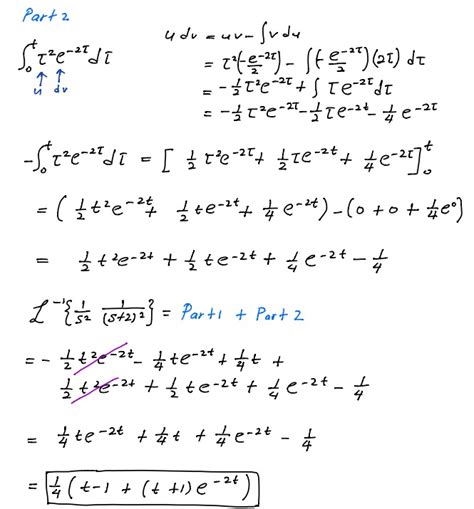 Part 2
∫₀ᵗ τ²e^(-2τ) dτ
u dv
u dv = uv - ∫v du
= τ²(-e^(-2τ)/2) - ∫(-e^(-2τ)/2)(2τ) dτ
= -1/2 τ²e^(-2τ) + ∫ τe^(-2τ) dτ
= -1/2 τ²e^(-2τ) - 1/2 τe^(-2t) - 1/4 e^(-2τ)
-∫₀ᵗ τ²e^(-2τ) dτ = [ 1/2 τ²e^(-2τ) + 1/2 τe^(-2τ) + 1/4 e^(-2τ) ]₀ᵗ
= ( 1/2 t²e^(-2t) + 1/2 te^(-2t) + 1/4 e^(-2t) ) - (0 + 0 + 1/4 e⁰)
= 1/2 t²e^(-2t) + 1/2 te^(-2t) + 1/4 e^(-2t) - 1/4
ℒ⁻¹{ 1/s² 1/(s+2)² } = Part 1 + Part 2
= - 1/2 t²e^(-2t) - 1/4 te^(-2t) + 1/4 t +
1/2 t²e^(-2t) + 1/2 te^(-2t) + 1/4 e^(-2t) - 1/4
= 1/4 te^(-2t) + 1/4 t + 1/4 e^(-2t) - 1/4
= 1/4 ( t-1 + (t+1) e^(-2t) )